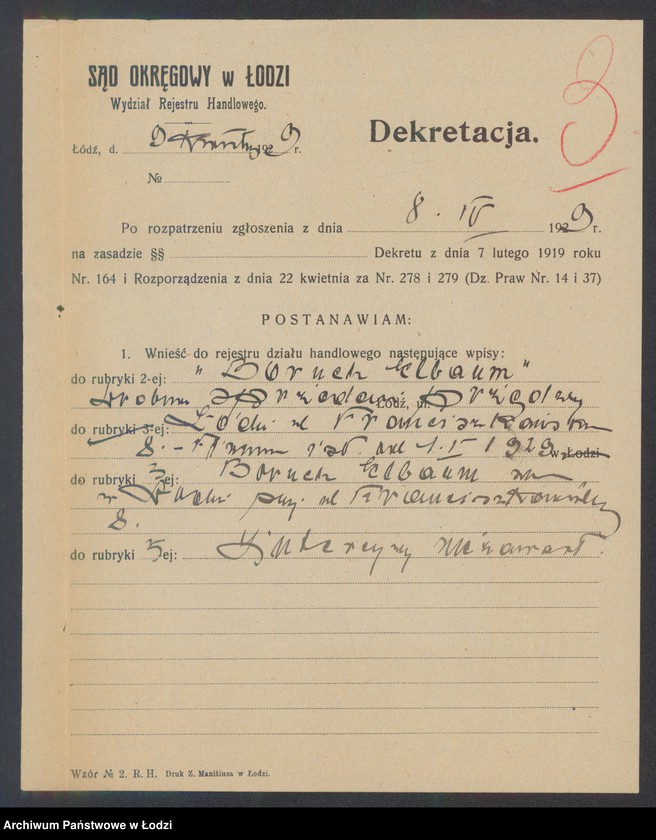 SĄD OKRĘGOWY w ŁODZI
Wydział Rejestru Handlowego.
3
Łódź, d. 9 Kwietnia 1929 r.
Dekretacja.
№
Po rozpatrzeniu zgłoszenia z dnia 8. IV 1929 r.
na zasadzie §§ Dekretu z dnia 7 lutego 1919 roku
Nr. 164 i Rozporządzenia z dnia 22 kwietnia za Nr. 278 i 279 (Dz. Praw Nr. 14 i 37)
POSTANAWIAM:
1. Wnieść do rejestru działu handlowego następujące wpisy:
do rubryki 2-ej: "Boruch Elbaum"
Drobna sprzedaż przędzy Łódź, ul.
do rubryki 3-ej: Łódź ul Franciszkańska
8. - Firma istn. od 1. I 1929 w Łodzi
do rubryki 3ej: Boruch Elbaum
w Łodzi przy ul Franciszkańskiej
8.
do rubryki 5ej: Intercyzy nie zawarł.
Wzór № 2. R. H. Druk Z. Manitiusa w Łodzi.
Archiwum Państwowe w Łodzi